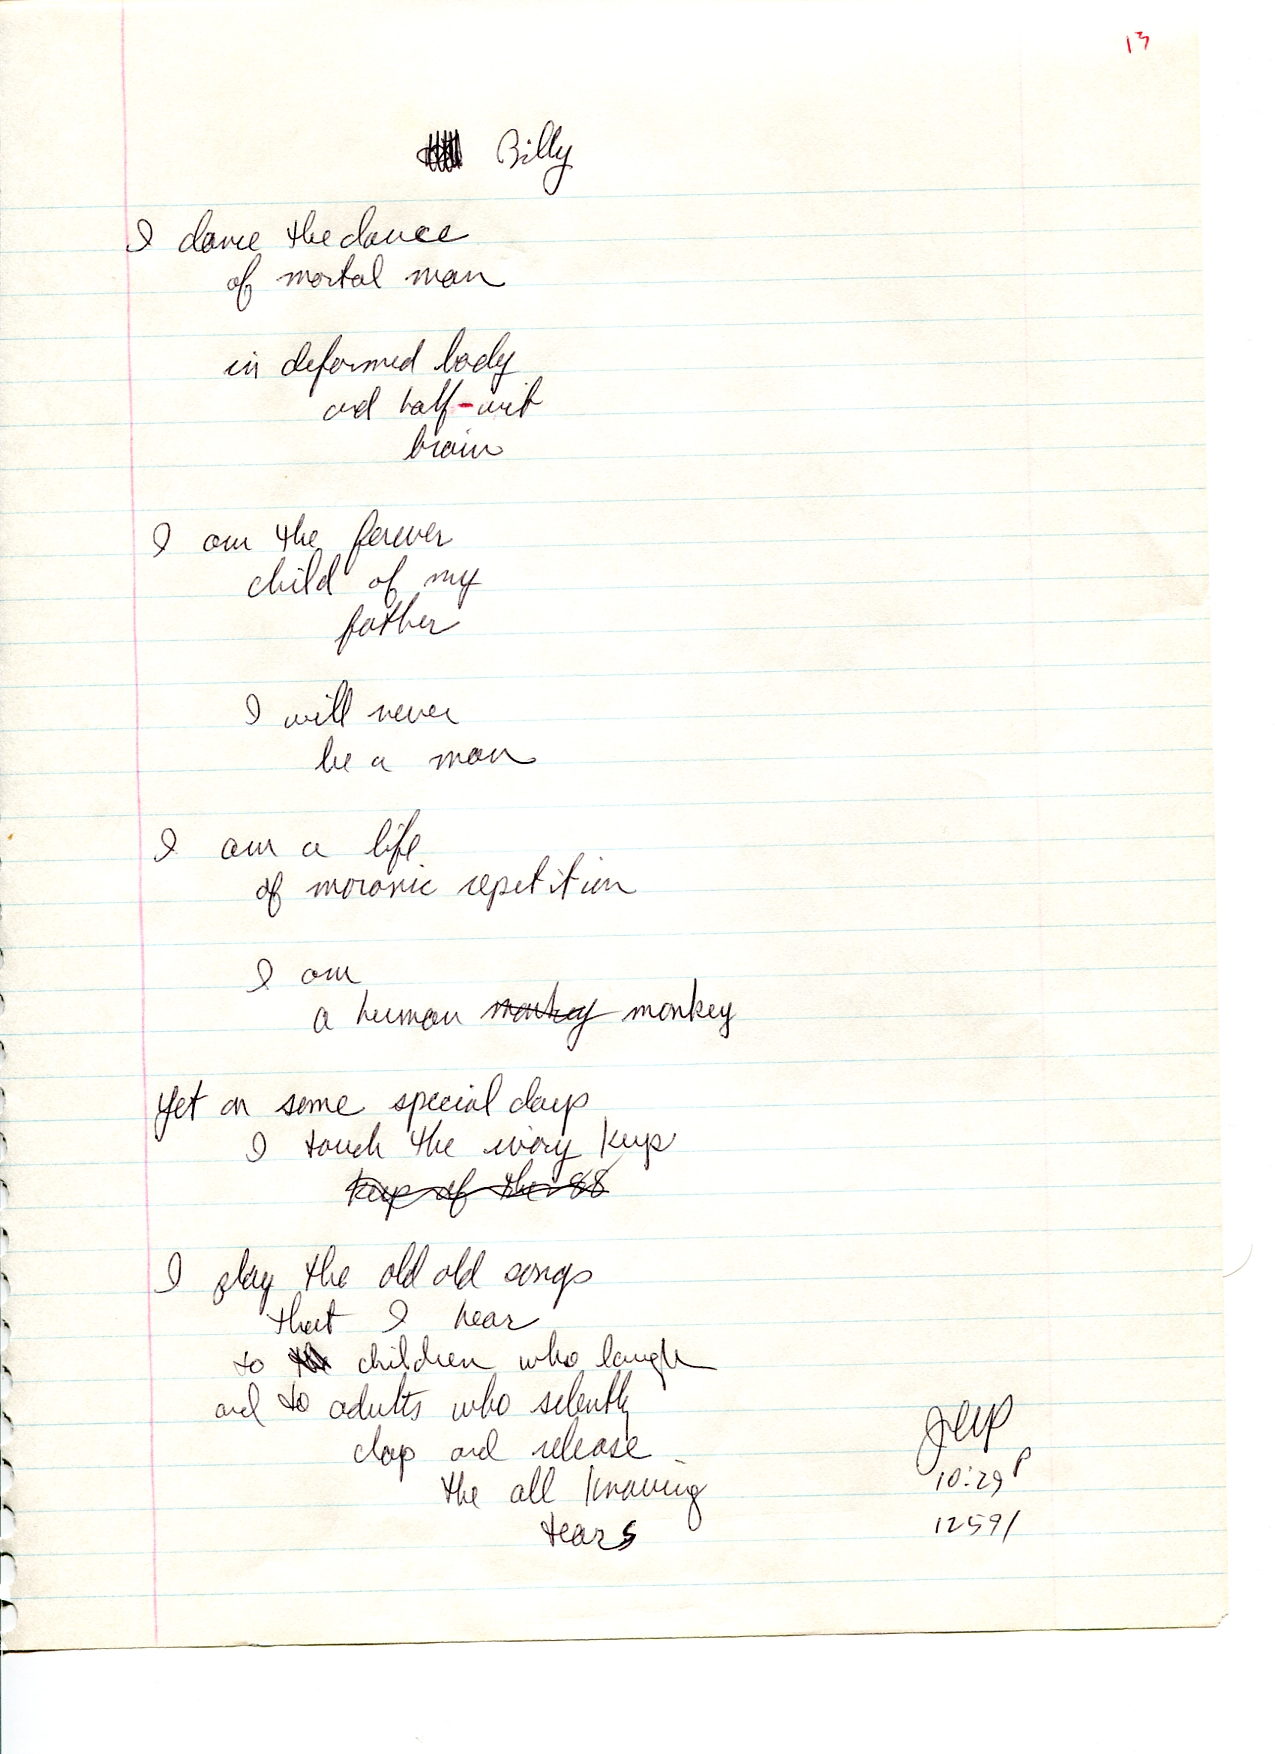 13
Billy
I dance the dance
of mortal man
in deformed body
and half-wit
brain
I am the forever
child of my
father
I will never
be a man
I am a life
of moronic repetition
I am
a human monkey monkey
Yet on some special days
I touch the ivory keys
keys of the 88
I play the old old songs
that I hear
to children who laugh
and to adults who silently
clap and release
the all knowing
tears
10:29 P
12591